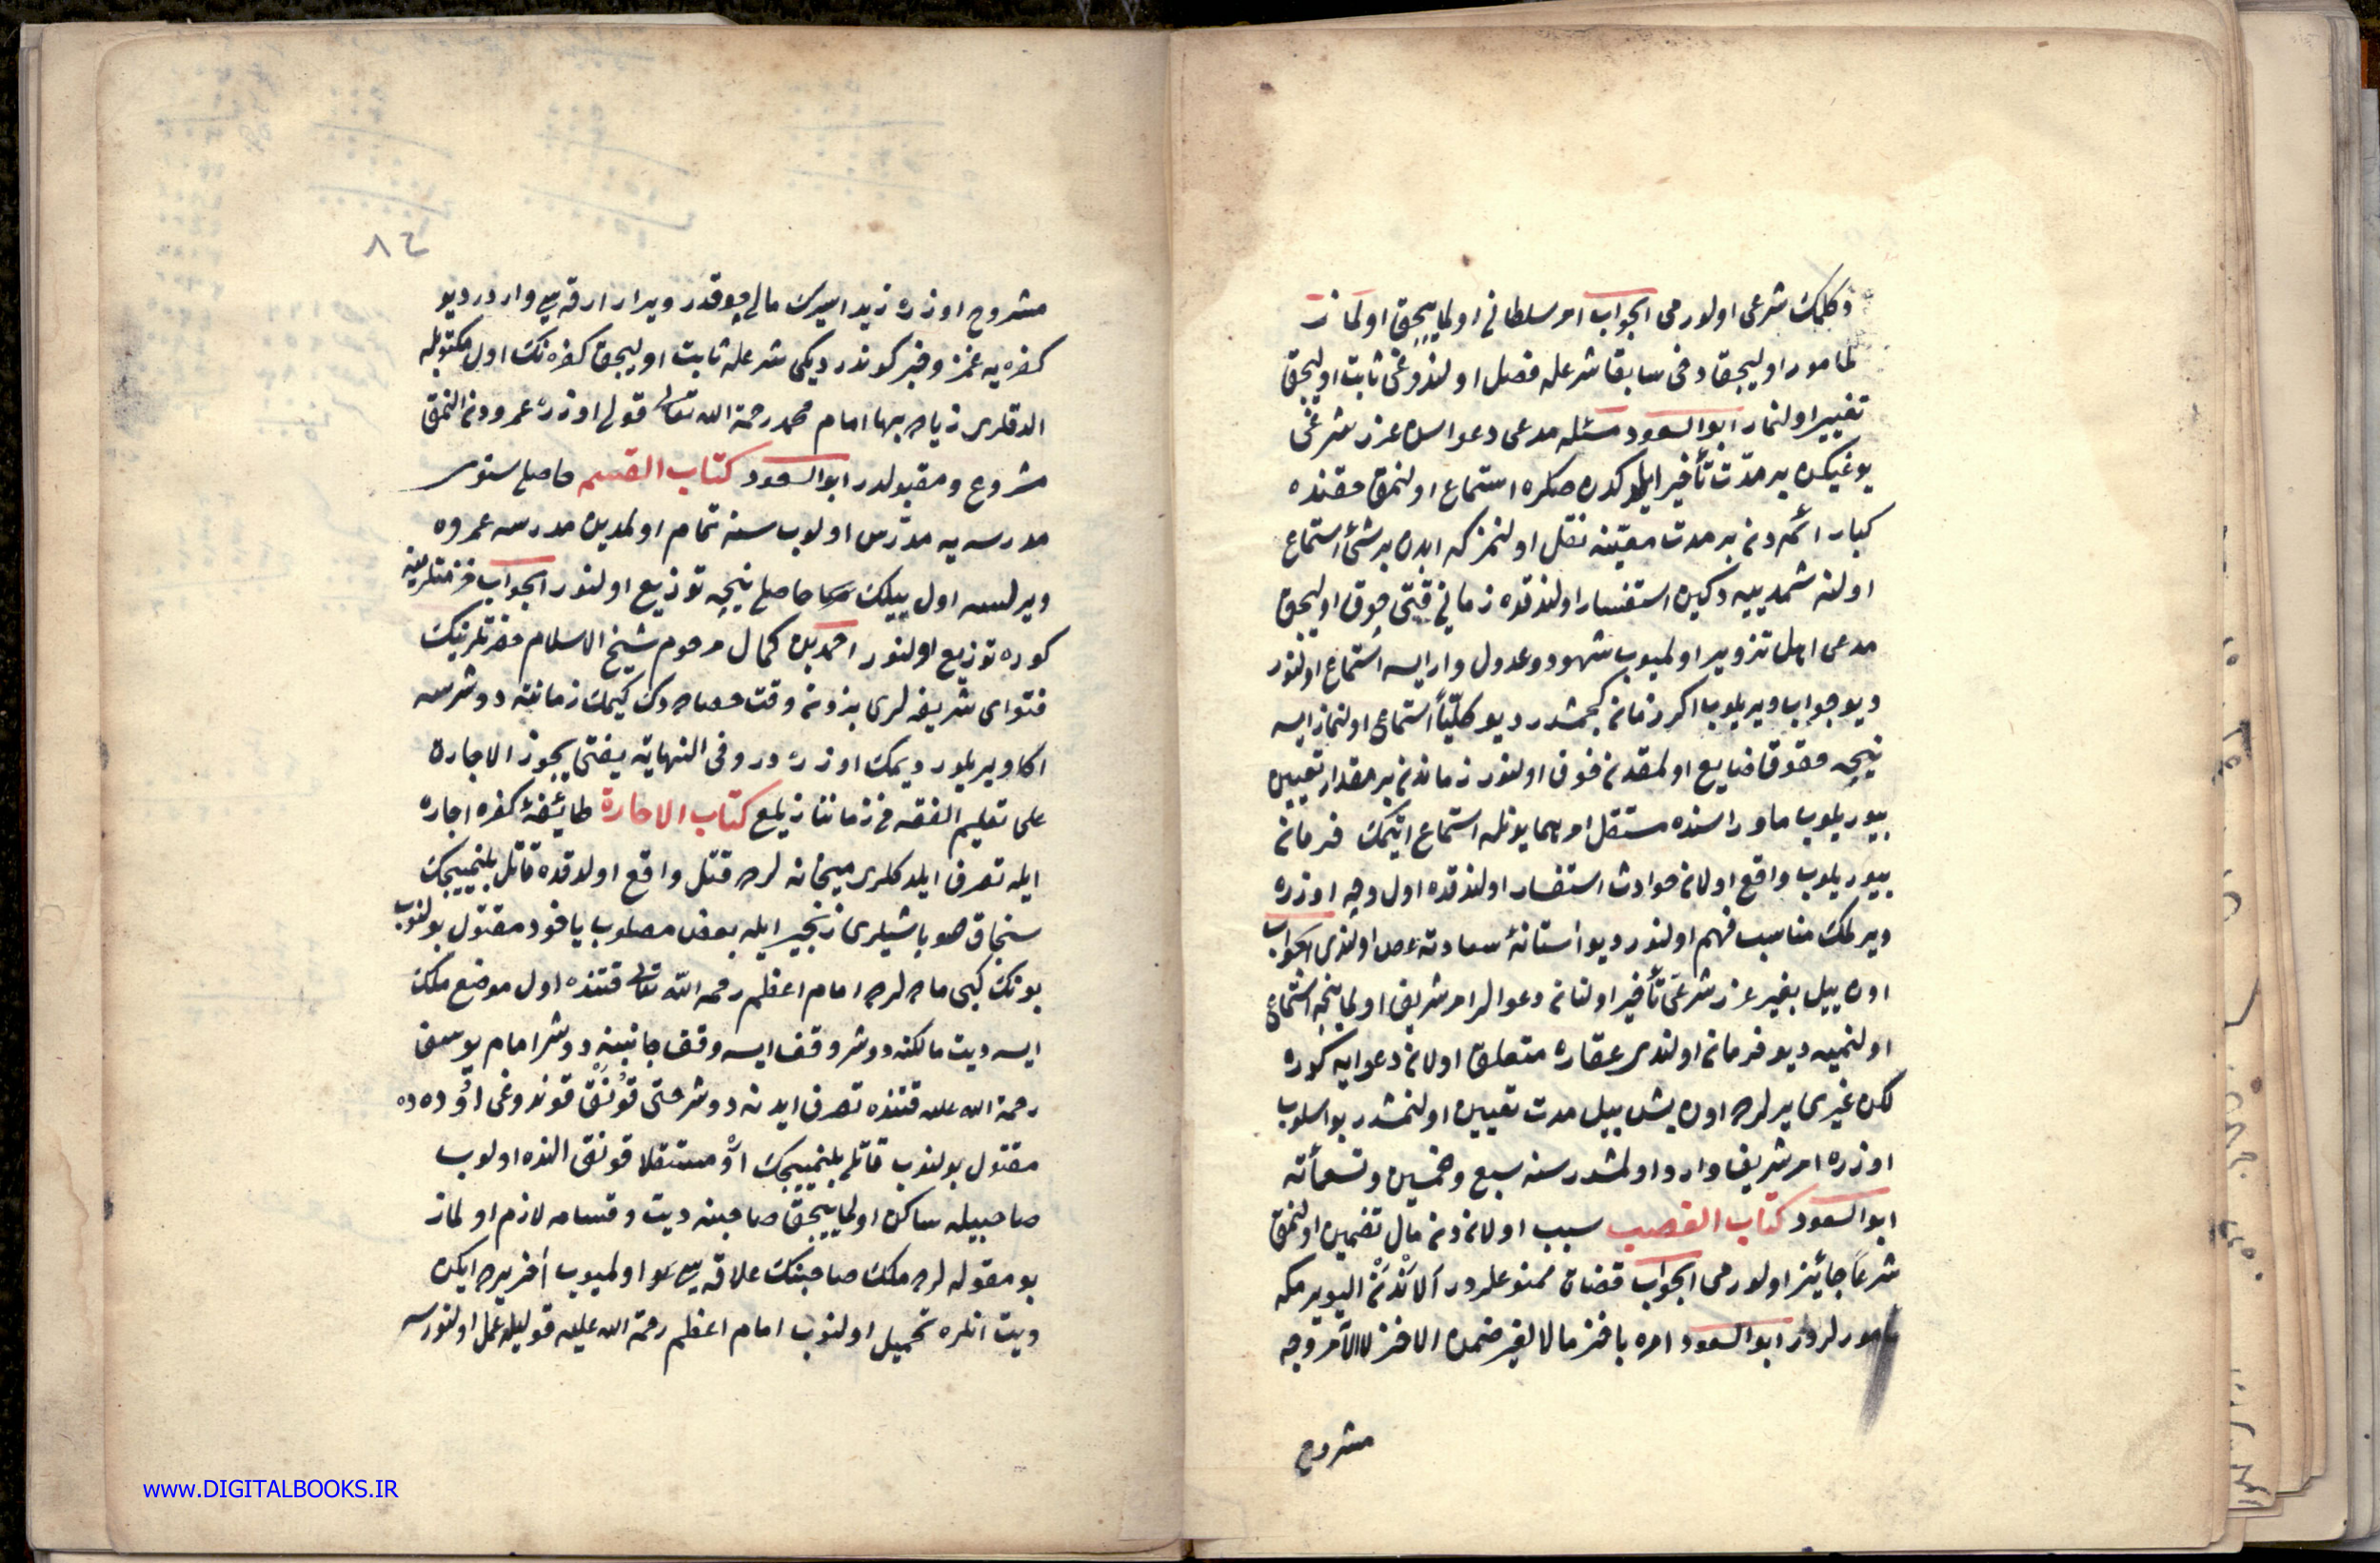 دكلمك شرعی اولورمی الجواب امر سلطانی اولمایيجق اولماز
مامور اوليجق دخی سابقا شرعله فصل اولندوغی ثابت اوليجق
تغيير اولنماز ابوالسعود مسئله مدعی دعواسن عذر شرعی
يوغيكن بر مدت تأخير ايلدكدن صكره استماع اولنمق حقنده
كبار ائمه دن بر مدت معينه نقل اولنمز كه اندن بری استماع
اولنه شمدييه دكين استفسار اولندقده زمانی قتی چوق اوليجق
مدعی اهل تزوير اولميوب شهود وعدول وار ايسه استماع اولنور
ديو جواب ويريلوب اكر زمان كچمشدر ديو كليّاً استماع اولنماز ايسه
نيچه حقوق ضايع اولمقدن خوف اولنور زماندن بر مقدار تعيين
بيوريلوب ماوراسنده مستقل امر همايونله استماع اتيمك فرمان
بيوريلوب واقع اولان حوادث استفسار اولندقده اول وجه اوزره
ويرلمك مناسب فهم اولنور ديو استانۀ سعادته عرض اولندی الجواب
اون ييل بغير عذر شرعی تأخير اولنان دعوالر امر شريف اولماينجه استماع
اولنميه ديو فرمان اولندی عقاره متعلق اولان دعوايه كوره
لكن غيری يرلرده اون بش ييل مدت تعيين اولنمشدر بو اسلوب
اوزره امر شريف وارد اولمشدر سنه سبع وخمسين وتسعمأته
ابوالسعود كتاب الغصب سبب اولاندن مال تضمين اولنمق
شرعاً جائيز اولورمی الجواب قضات ممنوعلردر الاندن اليويرمكه
مامورلردر ابوالسعود امره باخذ مال الغير ضمن الاخذ لا الآمر وجه
مشروح
٨٢
مشروح اوزره زيد اسيرك مالی چوقدر ويرار ارقه سی واردر ديو
كفره يه غمز وخبر كوندرديكی شرعله ثابت اوليجق كفره نك اول مكتوبله
الدقلری زياده بها امام محمد رحمة الله تعالی قولی اوزره عمرودن النمق
مشروع ومقبولدر ابوالسعود كتاب القسم حاصلی سنوی
مدرسه يه مدرس اولوب سنه تمام اولمدين مدرسه عمروه
ويرلسه اول ييلك حاصلی نيچه توزيع اولنور الجواب خزمتلرينه
كوره توزيع اولنور احمد بن كمال مرحوم شيخ الاسلام حضرتلرنيك
فتوای شريفه لری بزدن وقت حصاددك كيمك زماننه دوشرسه
اكا ويريلور ديمك اوزره در وفی النهاية يفتی بجوز الاجارة
علی تعليم الفقه فی زماننا زيلعی كتاب الاجارة طائيفۀ كفره اجاره
ايله تصرف ايلدكلری ميخانه لرده قتل واقع اولدقده قاتل بلنمييجك
سنجاق صوباشيلری زنجير ايله بعض مصلوب ياخود مقتول بولنوب
بونك كبی ماده لرده امام اعظم رحمه الله تعالی قتنده اول موضع ملك
ايسه ديت مالكنه دوشر وقف ايسه وقف جانبينه دوشر امام يوسف
رحمة الله عليه قتنده تصرف ايدنه دوشر حتی قونق قوندوغی اوده ده
مقتول بولنوب قاتلی بلنمييجك او مستقلا قونق النده اولوب
صاحبيله ساكن اولماييجق صاحبنه ديت وقسامه لازم اولماز
بو مقوله لرده ملك صاحبنك علاقه سی اولميوب اخر يرده ايكن
ديت انلره تحميل اولنوب امام اعظم رحمة الله عليه قوليله عمل اولنورسه
www.DIGITALBOOKS.IR